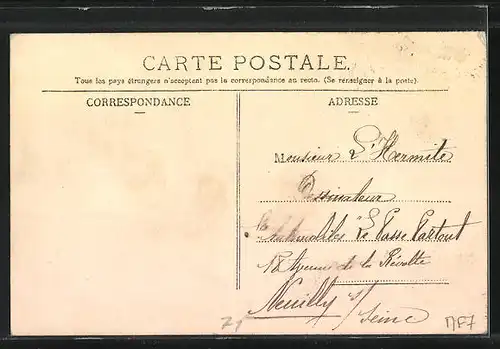 CARTE POSTALE.
Tous les pays étrangers n'acceptent pas la correspondance au recto. (Se renseigner à la poste).
CORRESPONDANCE
ADRESSE
Monsieur L'Hermite
Dessinateur
Automobiles "Le Passe Partout
18 Avenue de la Révolte
Neuilly s/
Seine
71